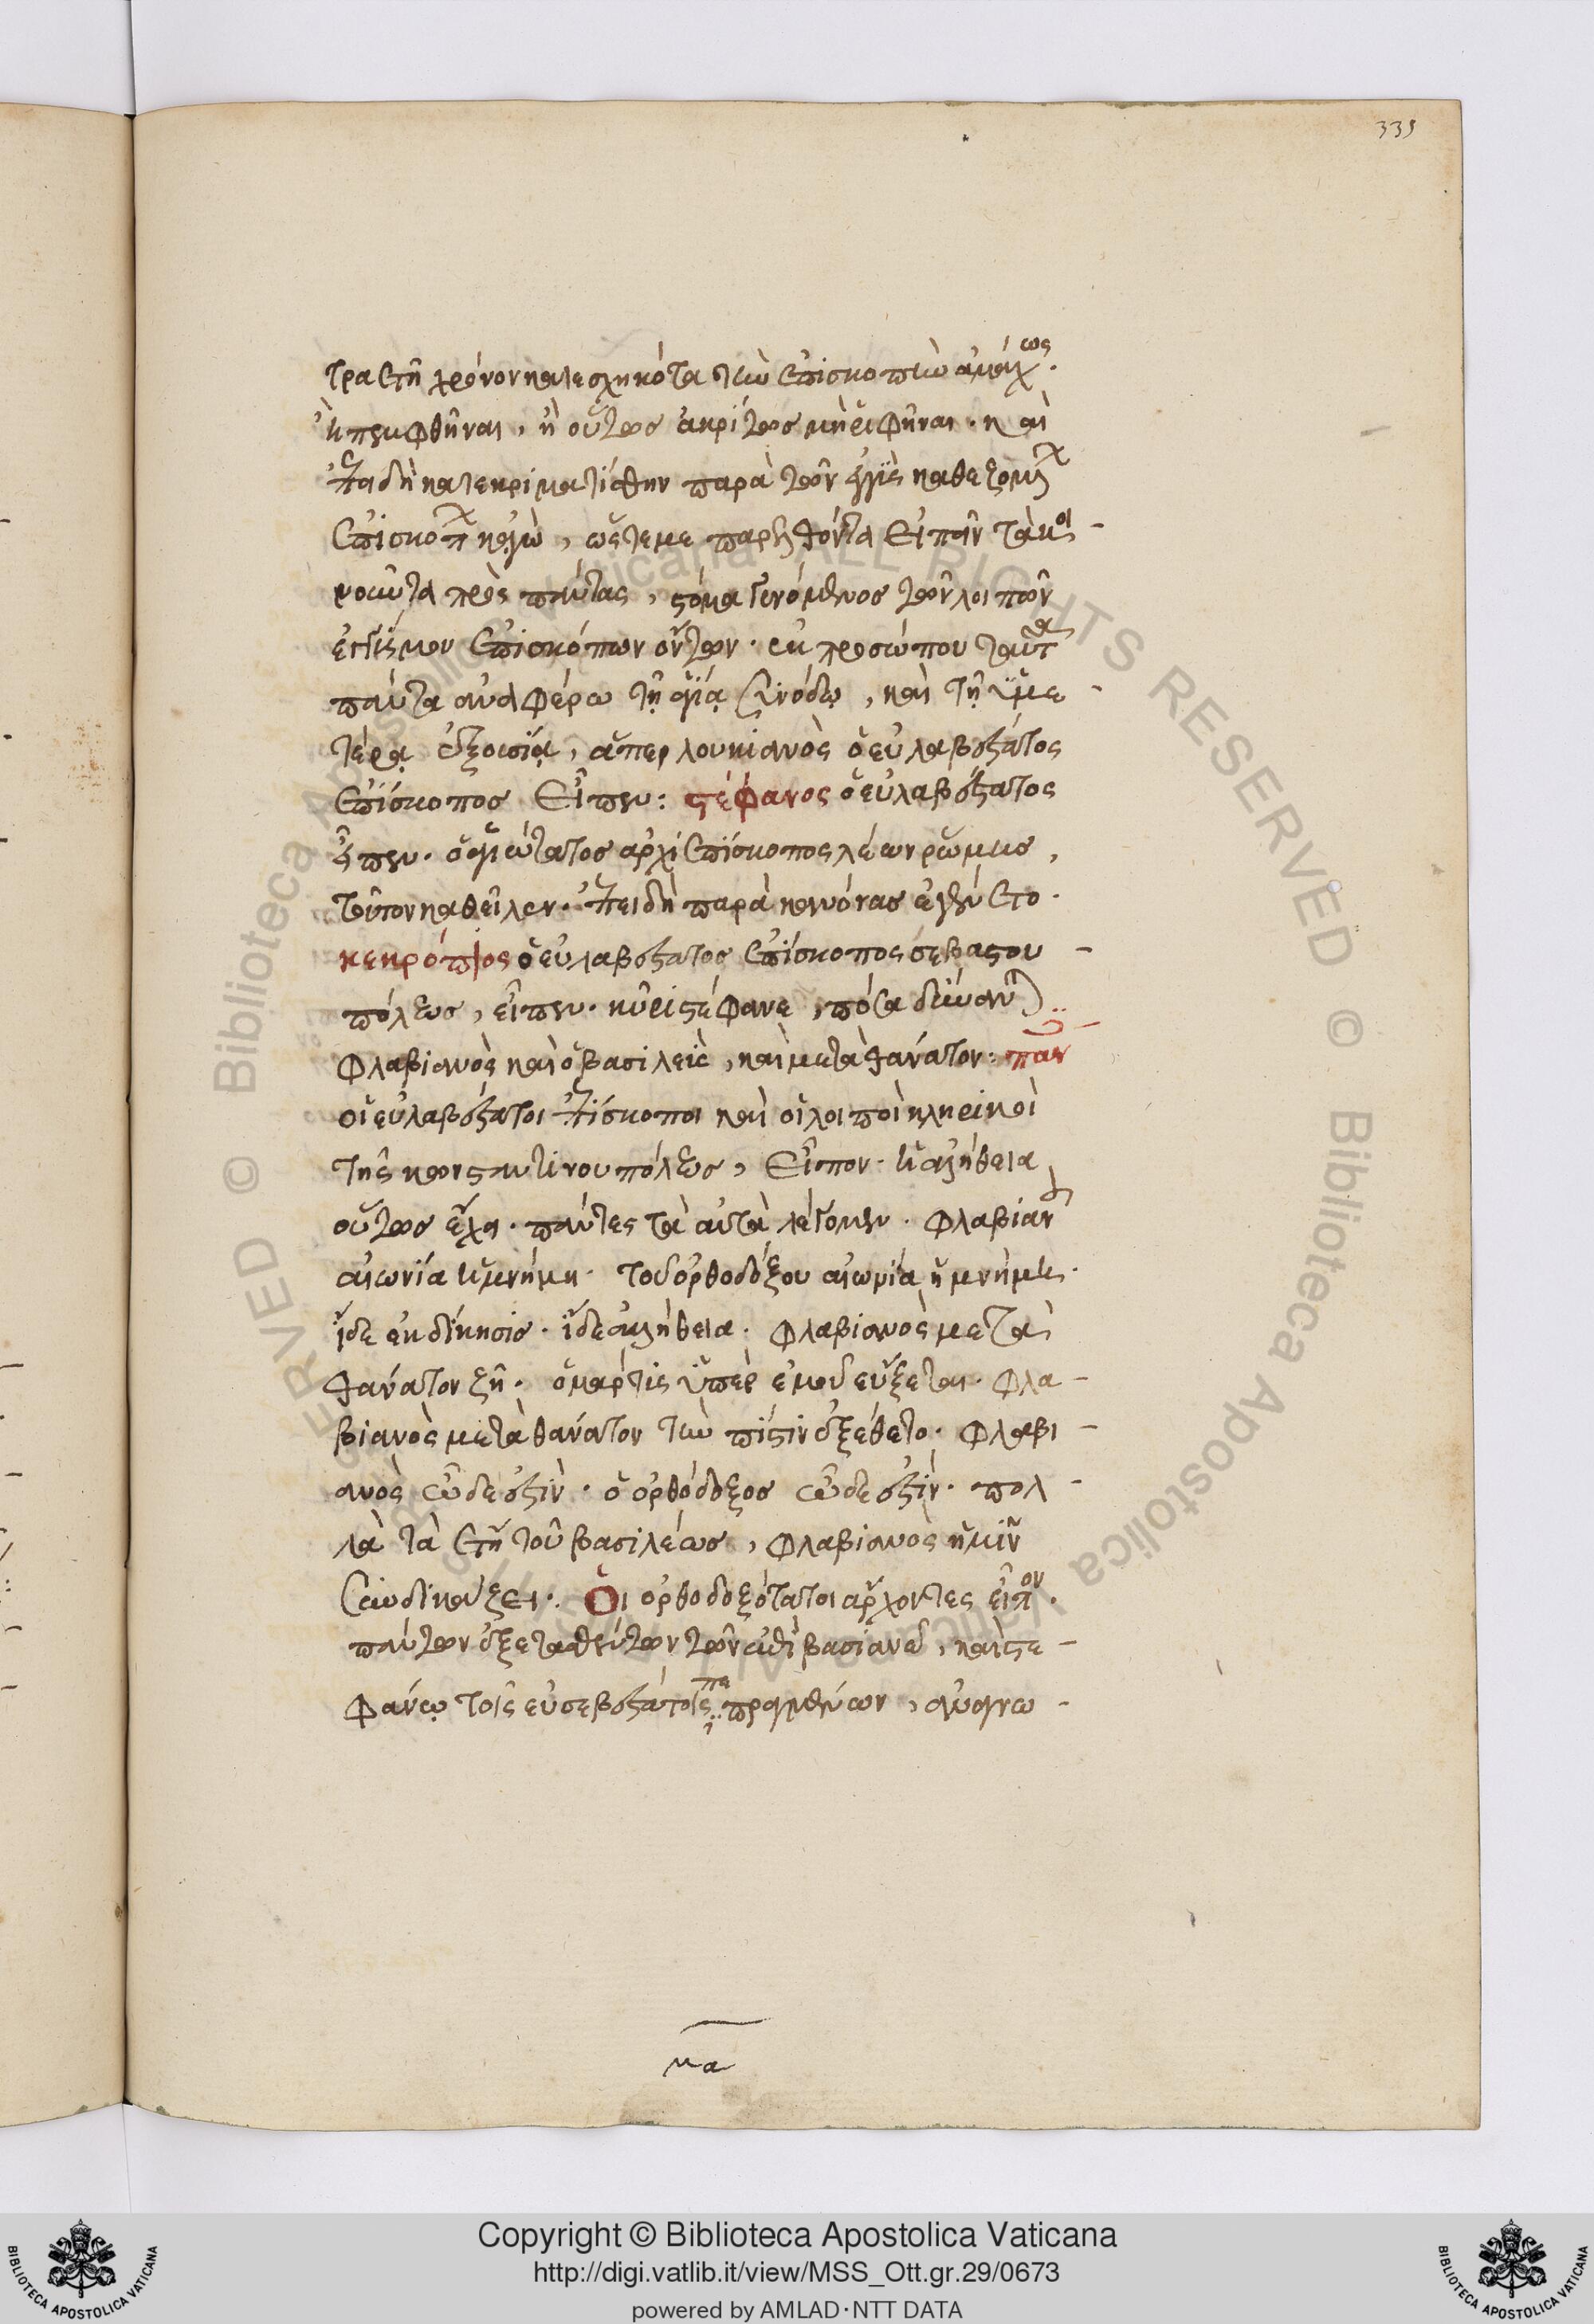 335
τραετῆ χρόνον κατεσχηκότα τὴν ἐπισκοπὴν ἀμάχως.
ἢ πεμφθῆναι, ἢ οὕτως ἀκρίτως μὴ ῥιφῆναι. καὶ
ἐπειδὴ κατεκριματίσθην παρὰ τῶν ἐγγὺς καθεζομένων
ἐπισκόπων κἀγὼ, ὥστε με παρελθόντα εἰπεῖν τὰ κοι-
νοῦντα πρὸς πάντας, στόμα γενόμενος τῶν λοιπῶν
ἐπισκόπων ὄντων. ἐκ προσώπου ταῦτα
πάντα ἀναφέρω τῇ ἁγίᾳ συνόδῳ, καὶ τῇ ὑμε-
τέρᾳ ἐξουσίᾳ, ἅπερ λουκιανὸς ὁ εὐλαβέστατος
ἐπίσκοπος εἶπεν: στέφανος ὁ εὐλαβέστατος
εἶπεν. ὁ ἁγιώτατος ἀρχιεπίσκοπος λέων ῥώμης,
τοῦτον καθεῖλεν. ἐπειδὴ παρὰ κανόνας ἐγένετο.
κεκρόπιος ὁ εὐλαβέστατος ἐπίσκοπος σεβαστου-
πόλεως, εἶπεν. κῦρι στέφανε, πόσα δύναται
φλαβιανὸς καὶ ὁ βασιλεὺς, καὶ μετὰ θάνατον: πάν
οἱ εὐλαβέστατοι ἐπίσκοποι καὶ οἱ λοιποὶ κληρικοὶ
τῆς κωνσταντίνου πόλεως, εἶπον. ἡ ἀλήθεια
οὕτως ἔχει. πάντες τὰ αὐτὰ λέγομεν. φλαβιανοῦ
αἰωνία ἡ μνήμη. τοῦ ὀρθοδόξου αἰωνία ἡ μνήμη.
ἴδε ἐκδίκησις. ἴδε ἀλήθεια. φλαβιανὸς μετὰ
θάνατον ζῆ. ὁ μάρτυς ὑπὲρ ἡμῶν εὔξεται. φλα-
βιανὸς μετὰ θάνατον τὴν πίστιν ἐξέθετο. φλαβι-
ανὸς ὧδε ἐστίν. ὁ ὀρθόδοξος ὧδε ἐστίν. πολ-
λὰ τὰ ἔτη τοῦ βασιλέως, φλαβιανὸς ἡμῖν
συνδικάζει. Οἱ ὀρθοδοξότατοι ἄρχοντες εἶπον.
πάντων ἐξετασθέντων τῶν ἐπὶ βασιανῶ, καὶ στε-
φάνῳ τοῖς εὐσεβεστάτοις πραχθέντων, ἀναγνω-
μα
© Biblioteca Apostolica Vaticana ALL RIGHTS RESERVED
Copyright © Biblioteca Apostolica Vaticana
http://digi.vatlib.it/view/MSS_Ott.gr.29/0673
powered by AMLAD·NTT DATA
BIBLIOTECA APOSTOLICA VATICANA
BIBLIOTECA APOSTOLICA VATICANA